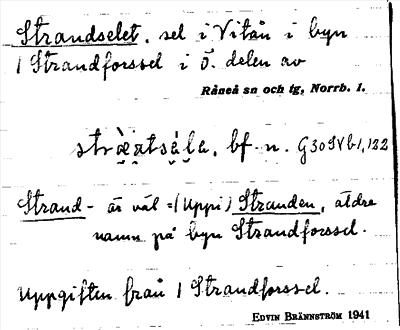 Strandselet, sel i Vitån i byn
1 Strandforssel i ö. delen av
Råneå sn och tg, Norrb. l.
stràṇtsẹ́lạ, bf. n. G30SVb1,122
Strand- är väl =(Uppi) Stranden, äldre
namn på byn Strandforssel.
Uppgiften från 1 Strandforssel.
EDVIN BRÄNNSTRÖM 1941